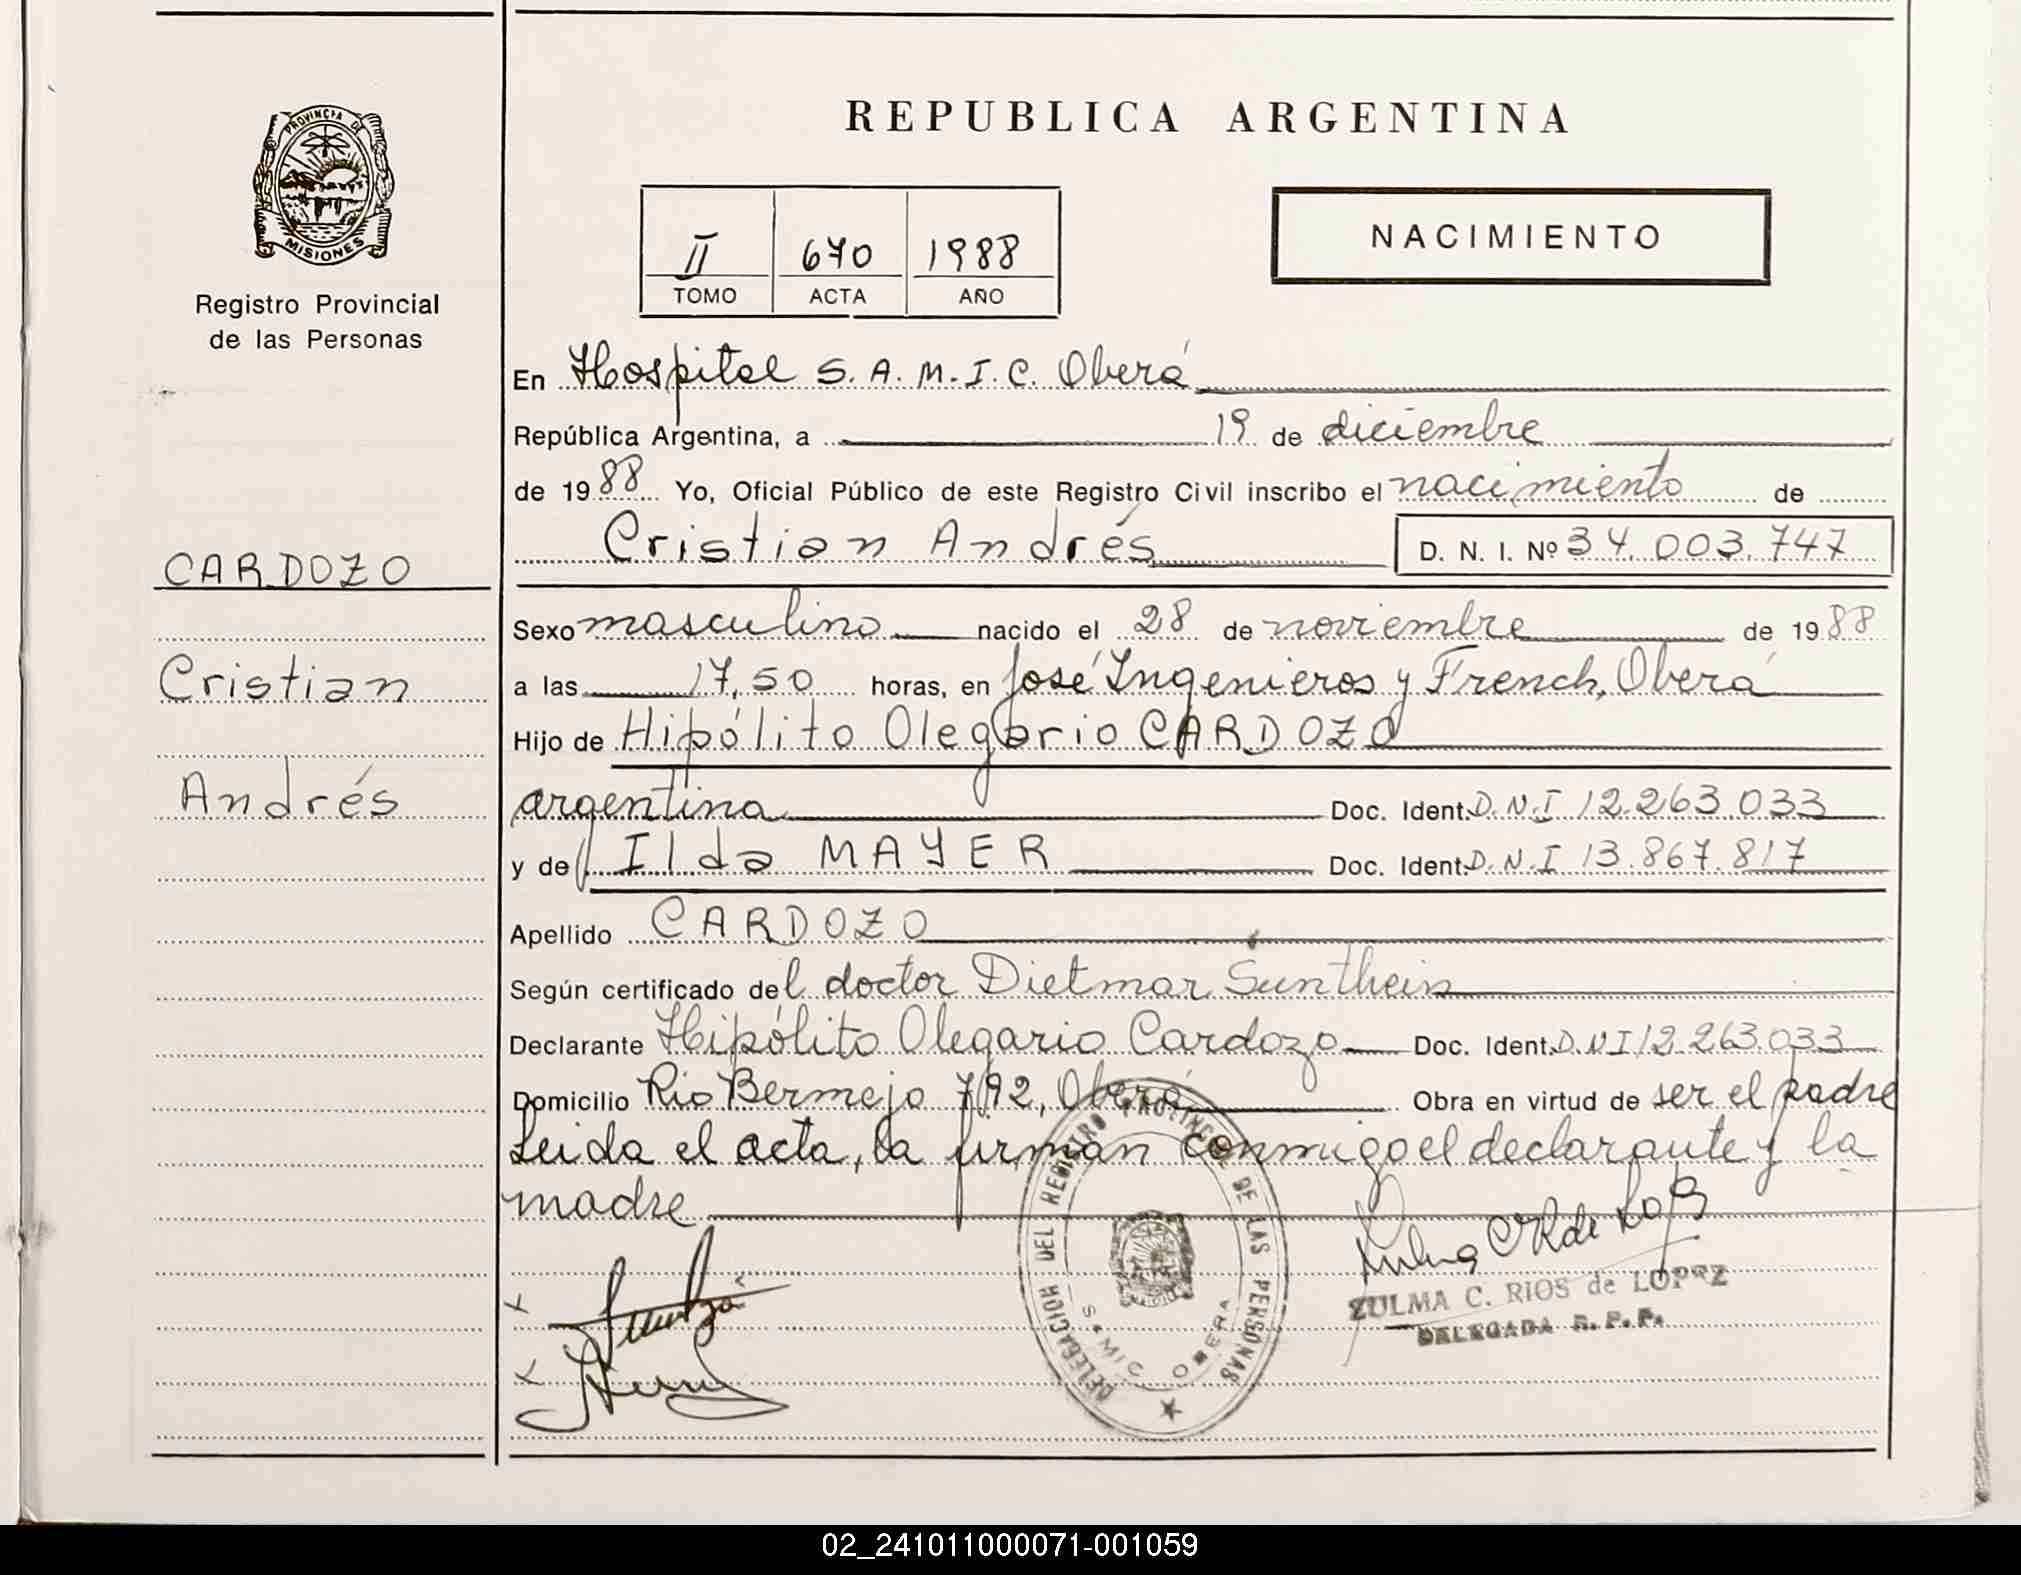 REPUBLICA ARGENTINA
PROVINCIA DE
MISIONES
Registro Provincial
de las Personas
II 670 1988
TOMO ACTA AÑO
NACIMIENTO
En Hospital S.A.M.I.C. Oberá
República Argentina, a 19 de diciembre
de 1988 Yo, Oficial Público de este Registro Civil inscribo el nacimiento de
Cristian Andrés D. N. I. Nº 34.003.747
CARDOZO
Cristian
Andrés
Sexo masculino nacido el 28 de noviembre de 1988
a las 17,50 horas, en José Ingenieros y French, Oberá
Hijo de Hipólito Olegario CARDOZO
argentina Doc. Ident. D.N.I 12.263.033
y de Ilda MAYER Doc. Ident. D.N.I 13.867.817
Apellido CARDOZO
Según certificado del doctor Dietmar Sunthein
Declarante Hipólito Olegario Cardozo Doc. Ident. D.N.I 12.263.033
Domicilio Río Bermejo 792, Oberá Obra en virtud de ser el padre
Leida el acta, la firman conmigo el declarante y la
madre
DELEGACION DEL REGISTRO PROVINCIAL DE LAS PERSONAS
SAMIC OBERA
ZULMA C. RIOS de LOPEZ
DELEGADA R.P.P.
02_241011000071-001059